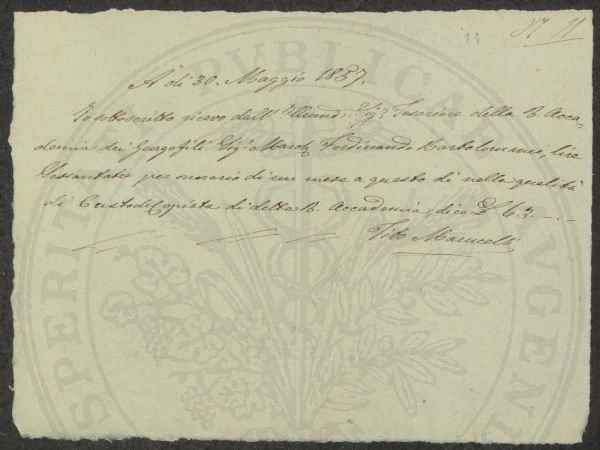 N 11
A dì 30. Maggio 1857.
Io sottoscritto ricevo dall' Illmo Sigr Tesoriere della R. Acca-
demia dei Georgofili Sigr March. Ferdinando Bartolommei, lire
Sessantatre per onorario di un mese a questo dì nella qualità
di Custode Copista di detta R. Accademia, dico £ 63. —. —
Tito Marucelli
PUBLICAE
PROSPERITATI
AUGENDAE